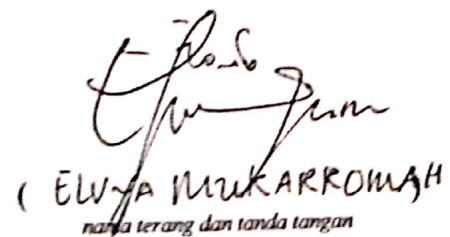 ( ELVYA MUKARROMAH
nama terang dan tanda tangan